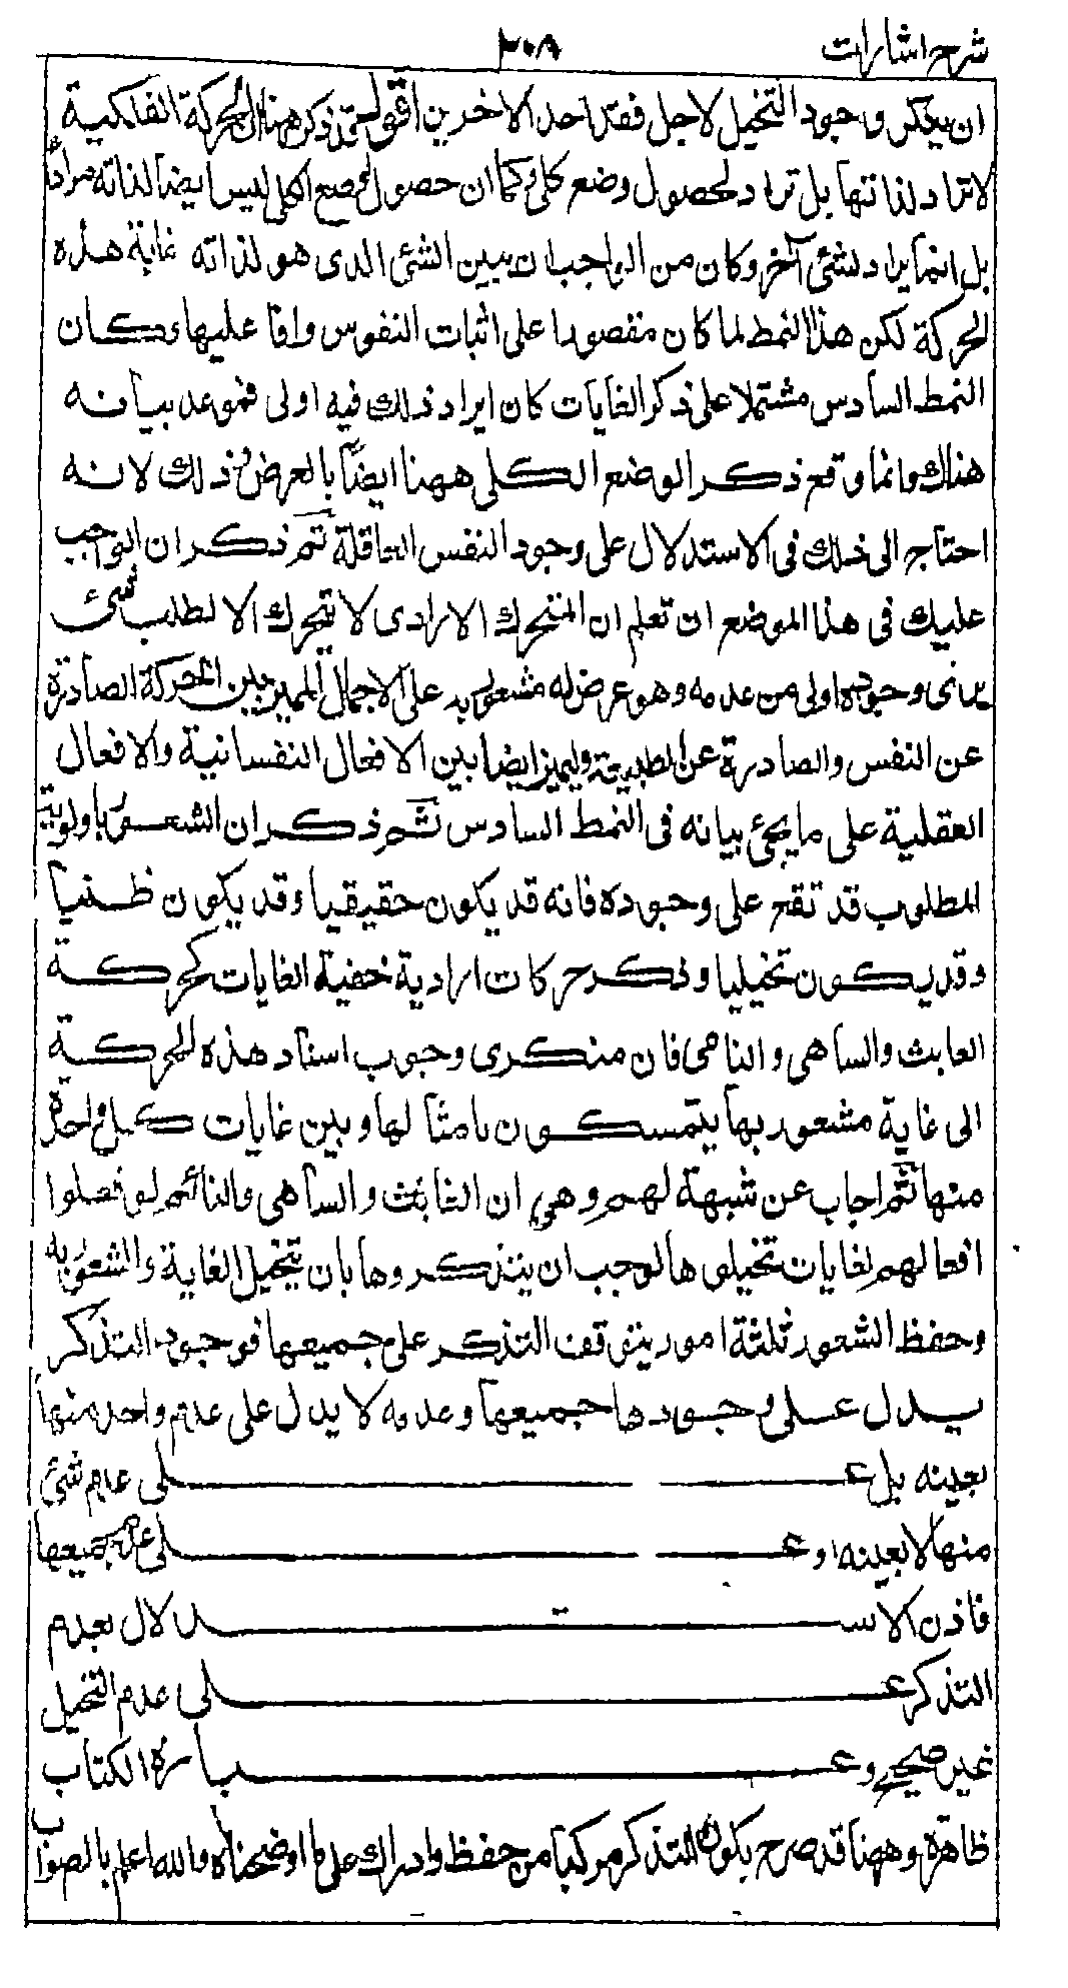 شرح اشارات
٣٠٨
ان ينكر وجود التخيل لاجل فقد احد الاخرين اقول قد ذكر هنا ان الحركة الفلكية
لا تراد لذاتها بل تراد لحصول وضع كلى وكما ان حصول الوضع الكلى ليس ايضا لذاته مرادا
بل انما يراد لشئ آخر وكان من الواجب ان يبين الشئ الذى هو لذاته غاية هذه
الحركة لكن هذا النمط لما كان مقصورا على اثبات النفوس واقا عليها وكان
النمط السادس مشتملا على ذكر الغايات كان ايراد ذلك فيه اولى فموعد بيانه
هناك وانما وقع ذكر الوضع الكلى ههنا ايضا بالعرض وذلك لانه
احتاج الى ذلك فى الاستدلال على وجود النفس العاقلة ثم ذكر ان الواجب
عليك فى هذا الموضع ان تعلم ان المتحرك الارادى لا يتحرك الا لطلب شئ
يرى وجوده اولى من عدمه وهو عرض له مشعور به على الاجمال المميز بين الحركة الصادرة
عن النفس والصادرة عن الطبيعة وليميز ايضا بين الافعال النفسانية والافعال
العقلية على ما يجئ بيانه فى النمط السادس ثم ذكر ان الشعور باولوية
المطلوب قد تقع على وجوده فانه قد يكون حقيقيا وقد يكون ظنيا
وقد يكون تخيليا وذكر حركات ارادية خفية الغايات كحركة
العابث والساهى والنائم فان منكرى وجوب اسناد هذه الحركة
الى غاية مشعور بها يتمسكون بامثالها وبين غايات كل واحدة
منها ثم اجاب عن شبهة لهم وهى ان العابث والساهى والنائم لو فعلوا
افعالهم لغايات تخيلوها لوجب ان يتذكروها بان تخيل الغاية والشعور به
وحفظ الشعور ثلثة امور يتوقف التذكر على جميعها فوجود التذكر
يدل على وجودها جميعها وعدمه لا يدل على عدم واحد منها
بعينه بل على عدم شئ
منها لا بعينه او على عدم جميعها
فاذن الاستدلال بعدم
التذكر على عدم التخيل
غير صحيح وعبارة الكتاب
ظاهرة وههنا قد صرح بكون التذكر مركبا من حفظ وادراك على ما اوضحناه والله اعلم بالصواب